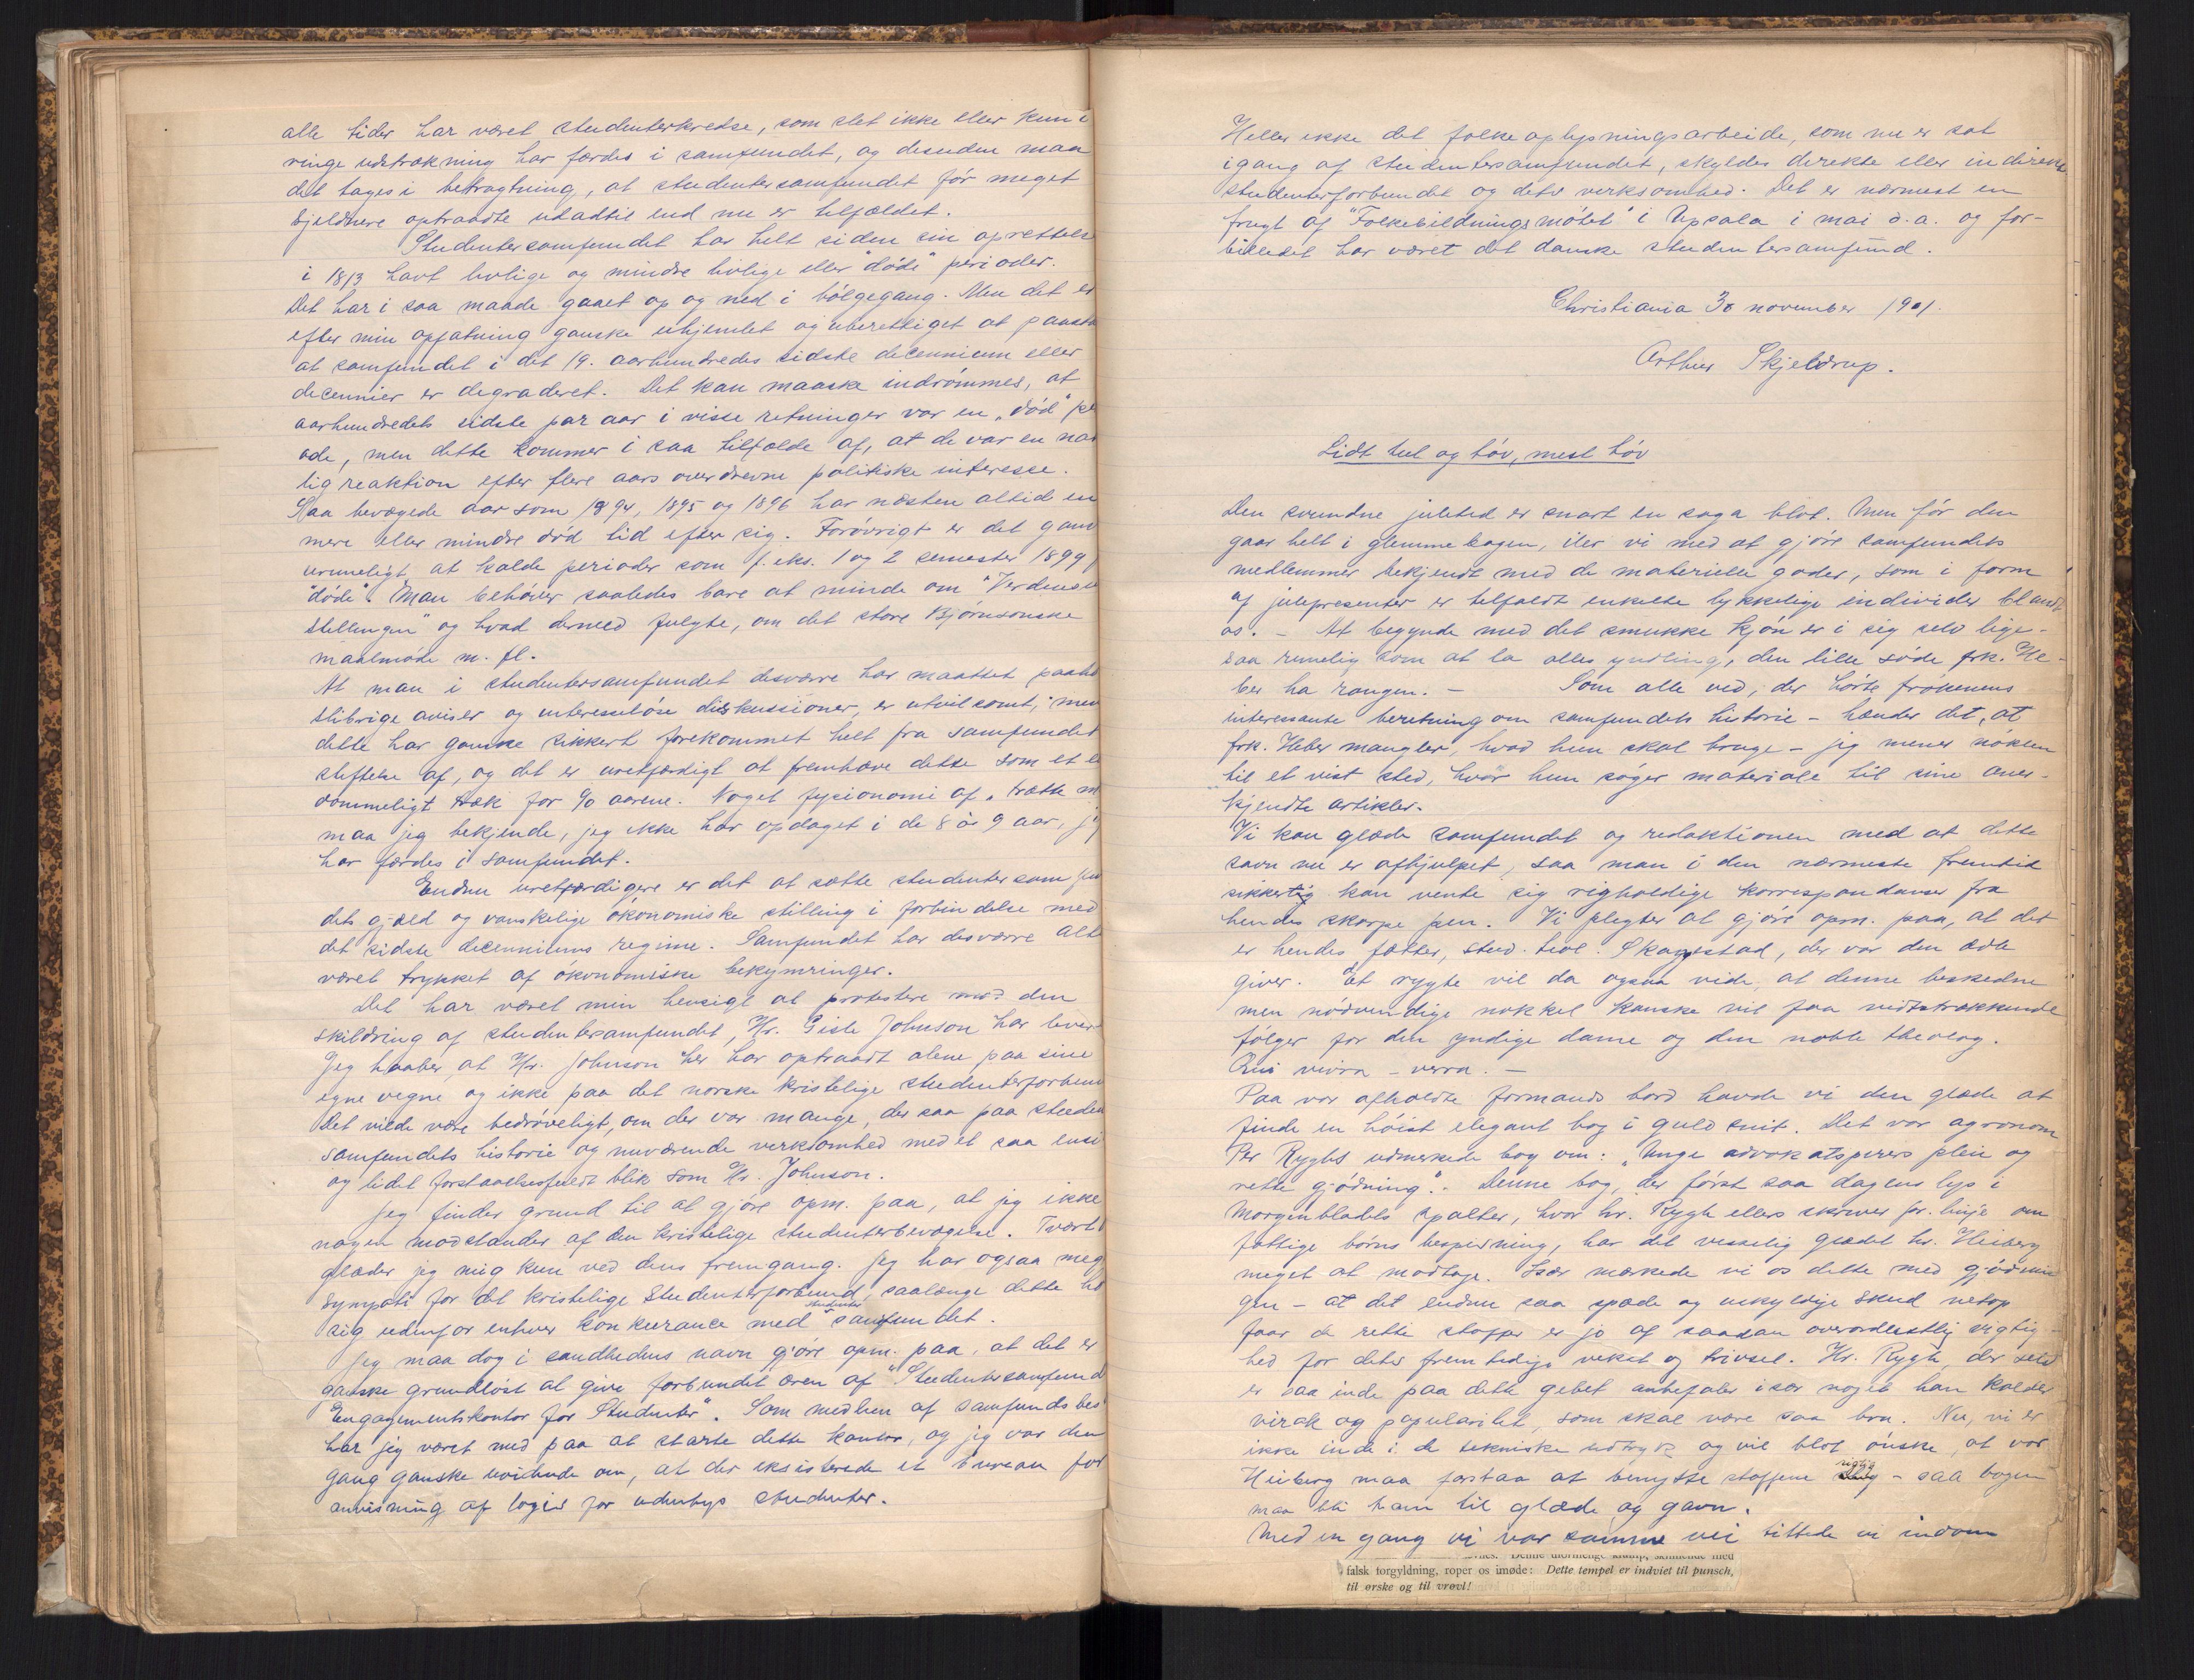 alle tider har været studenterkredse, som slet ikke eller kun i
ringe udstrækning har færdes i samfundet, og desuden maa
det tages i betragtning, at studentersamfundet før meget
sjeldnere optraadte udadtil end nu er tilfældet.
Studentersamfundet har helt siden sin oprettelse
i 1813 havt livlige og mindre livlige eller "døde" perioder.
Det har i saa maade gaaet op og ned i bølgegang. Men det er
efter min opfatning ganske uhjemlet og uberettiget at paasta
at samfundet i det 19. aarhundredes sidste decennium eller
decennier er degraderet. Det kan maaske indrømmes, at
aarhundredets sidste par aar i visse retninger var en „død" pe
ode, men dette kommer i saa tilfælde af, at de var en na
lig reaktion efter flere aars overdrevne politiske interesse.
Saa bevægede aar som 1894, 1895 og 1896 har næsten altid en
mere eller mindre død tid efter sig. Forøvrigt er det gan
urimeligt at kalde perioder som f. eks. 1 og 2 semester 1899
"døde". Man behøver saaledes bare at minde om "Verdensu
stillingen" og hvad dermed fulgte, om det store Bjørnsonske
maalmøde m. fl.
At man i studentersamfundet desværre har maattet paahø
slibrige aviser og interesseløse diskussioner, er utvilsomt, men
dette har ganske sikkert forekommet helt fra samfundet
stiftelse af, og det er uretfærdigt at fremhæve dette som et e
dommeligt træk for 90 aarene. Noget fysionomi af „trætte m
maa jeg bekjende, jeg ikke har opdaget i de 8 à 9 aar, jeg
har færdes i samfundet.
Endnu uretfærdigere er det at sætte studentersamfun
dets gjæld og vanskelige økonomiske stilling i forbindelse med
det sidste decenniums regime. Samfundet har desværre alt
været trykket af økonomiske bekymringer.
Det har været min hensigt at protestere mod den
skildring af studentersamfundet, Hr. Gisle Johnson har lever
Jeg haaber, at Hr. Johnson her har optraadt alene paa sine
egne vegne og ikke paa det norske kristelige studenterforbun
Det vilde være bedrøveligt, om der var mange, der saa paa studen
samfundets historie og nuværende verksomhed med et saa ensi
og lidet forstaaelsesfuldt blik som Hr. Johnson.
Jeg finder grund til at gjøre opm. paa, at jeg ikke
nogen modstander af den kristelige studenterbevægelse. Tvært
glæder jeg mig kun ved dens fremgang. Jeg har ogsaa meg
sympati for det kristelige Studenterforbund, saalænge dette hol
sig udenfor enhver konkurance med studentersamfundet.
Jeg maa dog i sandhedens navn gjøre opm. paa, at det er
ganske grundløst at give forbundet æren af "Studentersamfund
Engagementskontor for Studenter". Som medlem af samfundsbes
har jeg været med paa at starte dette kontor, og jeg var den
gang ganske uvidende om, at der eksisterede et bureau for
anvisning af logis for udenbys studenter.
Heller ikke det folkeoplysningsarbeide, som nu er sat
igang af studentersamfundet, skyldes direkte eller indirekte
studenterforbundet og dets verksomhed. Det er nærmest en
frugt af "Folkebildningsmötet" i Upsala i mai d. a. og for-
billedet har været det danske studentersamfund.
Christiania 30 november 1901.
Arthur Skjeldrup.
Lidt tul og tøv, mest tøv
Den svundne juletid er snart en saga blot. Men før den
gaar helt i glemmebogen, iler vi med at gjøre samfundets
medlemmer bekjendt med de materielle goder, som i form
af julepresenter er tilfaldt enkelte lykkelige individer blandt
os. - At begynde med det smukke kjøn er i sig selv lige-
saa rimelig som at la alles yndling, den lille søde frk. He-
ber ha rangen. - Som alle ved, der hørte frøkenens
interessante beretning om samfundets historie - hænder det, at
frk. Heber mangler, hvad hun skal bruge - jeg mener nøklen
til et vist sted, hvor hun søger materiale til sine aner-
kjendte artikler.
Vi kan glæde samfundet og redaktionen med at dette
savn nu er afhjulpet, saa man i den nærmeste fremtid
sikkerlig kan vente sig righoldige korrespondanser fra
hendes skarpe pen. Vi plegter at gjøre opm. paa, at det
er hendes fætter, stud. teol. Skagestad, der var den ædle
giver. Et rygte vil da ogsaa vide, at denne beskedne
men nødvendige nøkkel kanske vil faa vidtrækkende
følger for den yndige dame og den noble theolog.
Qui vivra - verra. -
Paa vor afholdte formands bord havde vi den glæde at
finde en høist elegant bog i guldsnit. Det var agronom
Per Ryghs udmerkede bog om: „Unge advokatspirers pleie og
rette gjødning." - Denne bog, der først saa dagens lys i
Morgenbladets spalter, hvor hr. Rygh ellers skriver pr. linje om
fattige børns bespisning, har det visselig glædet hr. Heiberg
meget at modtage. Især mærkede vi os dette med gjødnin
gen - at det endnu saa spæde og uskyldige skud netop
faar de rette stoffer er jo af saadan overordentlig vigtig-
hed for dets fremtidige vekst og trivsel. Hr. Rygh, der selv
er saa inde paa dette gebet anbefaler især noget han kalder
virak og popularitet, som skal være saa bra. Nu, vi er
ikke inde i de tekniske udtryk og vil blot ønske, at vor
Heiberg maa forstaa at benytte stoffene rigtig - saa bogen
maa bli ham til glæde og gavn.
Med en gang vi var samme vei tittede vi indom
falsk forgyldning, roper os imøde: Dette tempel er indviet til punsch,
til ørske og til vrøvl!